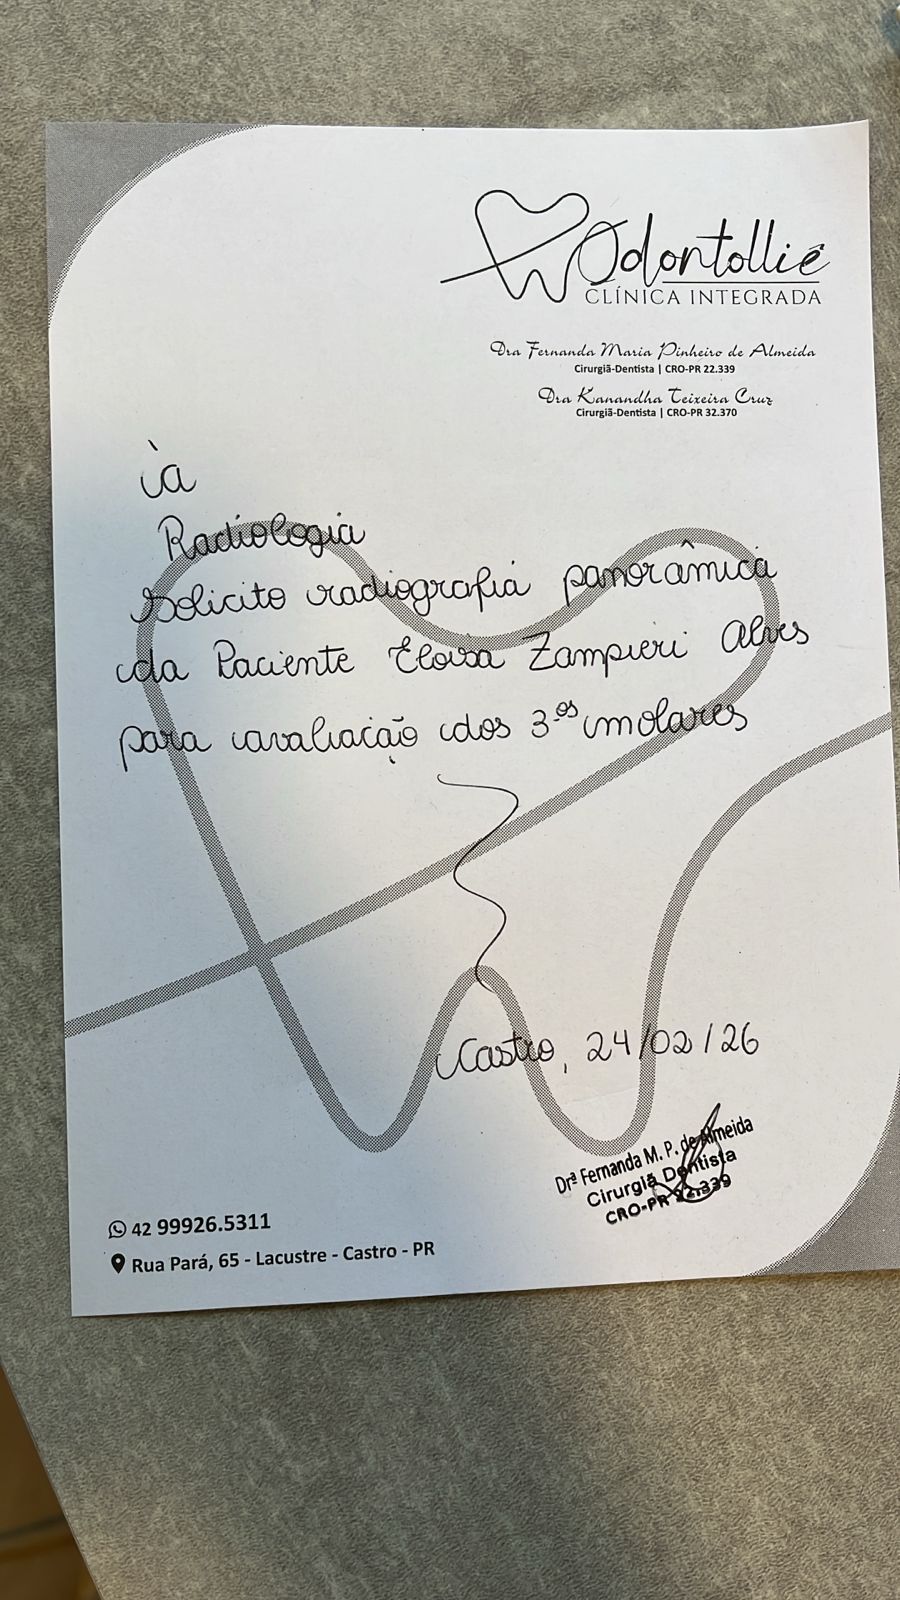 Odontolliê
CLÍNICA INTEGRADA
Dra Fernanda Maria Pinheiro de Almeida
Cirurgiã-Dentista | CRO-PR 22.339
Dra Kanandha Teixeira Cruz
Cirurgiã-Dentista | CRO-PR 32.370
à
Radiologia
Solicito radiografia panorâmica
da Paciente Eloisa Zampieri Alves
para avaliação dos 3.os molares
Castro, 24/02/26
Drª Fernanda M. P. de Almeida
Cirurgiã Dentista
CRO-PR 22.339
42 99926.5311
Rua Pará, 65 - Lacustre - Castro - PR